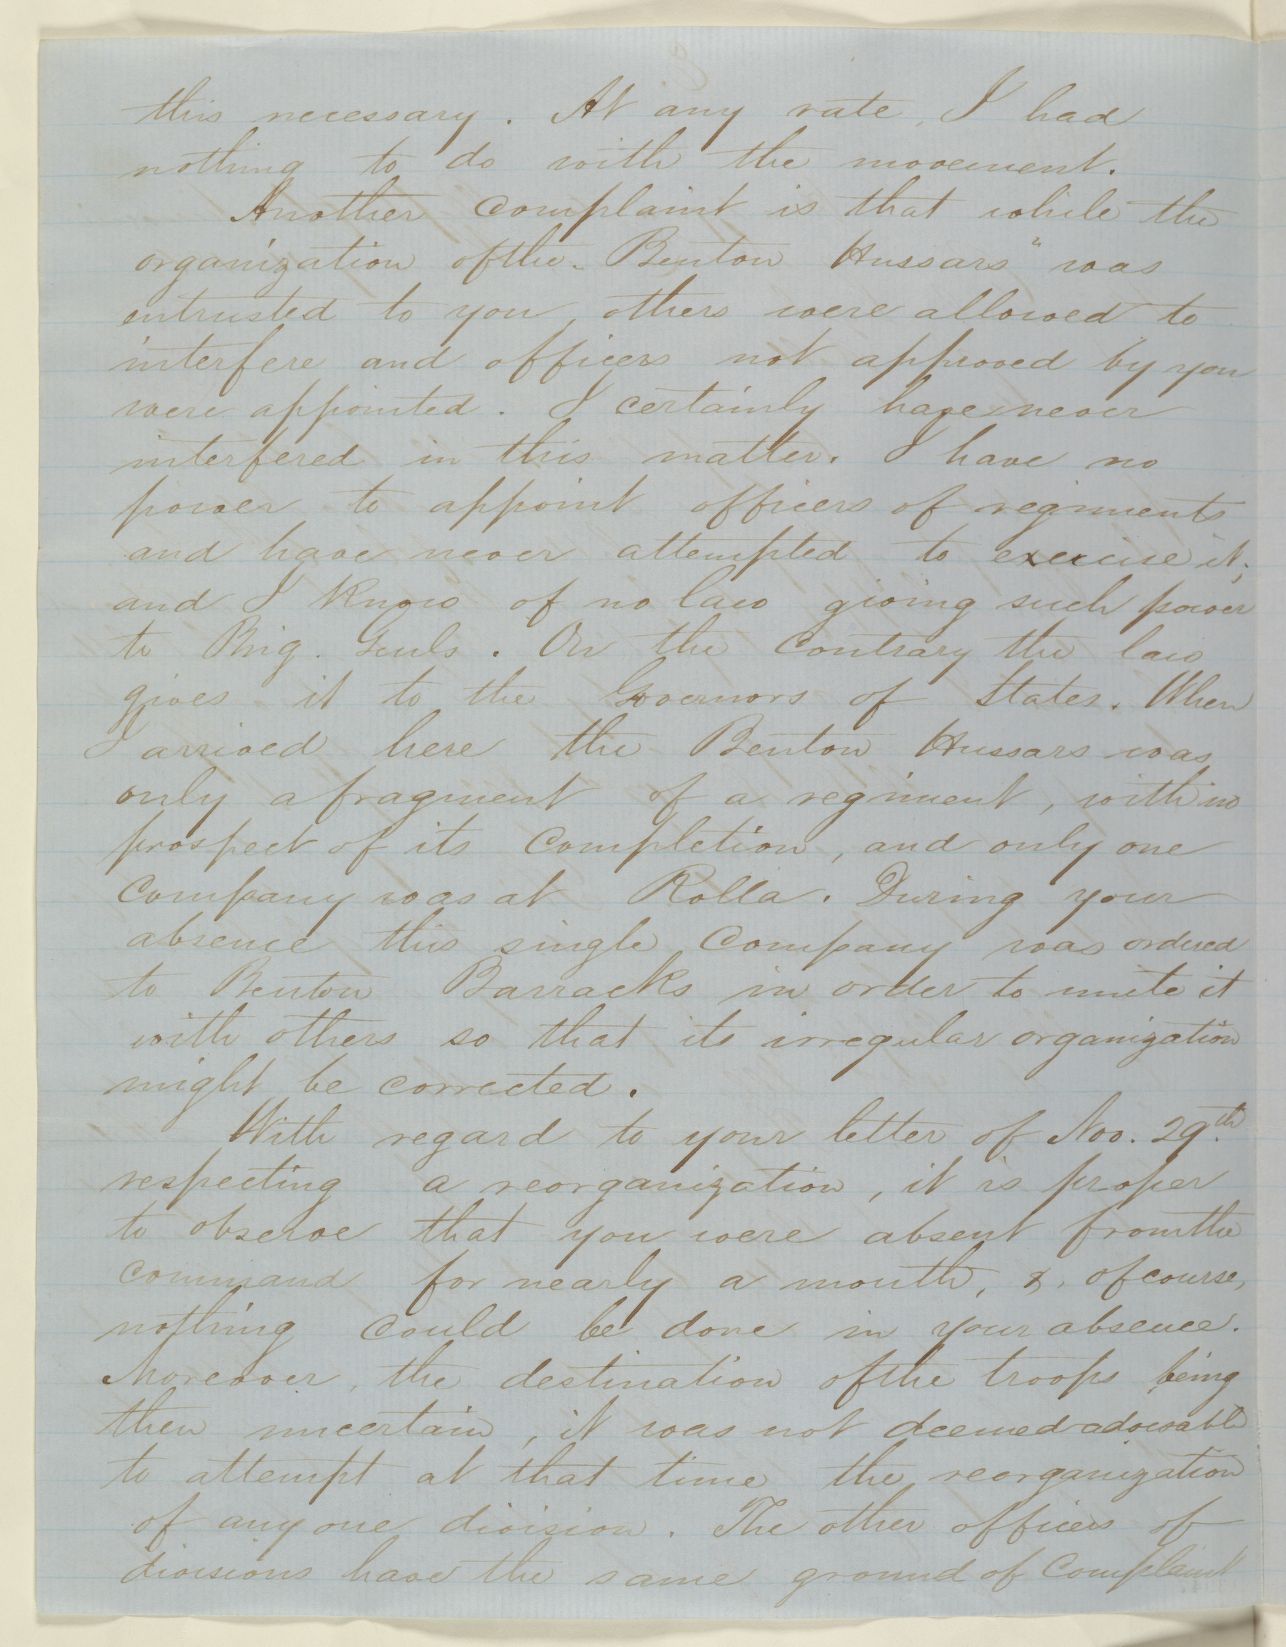 this necessary. At any rate, I had
nothing to do with the movement.
Another complaint is that while the
organization of the "Benton Hussars" was
entrusted to you, others were allowed to
interfere and officers not approved by you
were appointed. I certainly have never
interfered in this matter. I have no
power to appoint officers of regiments
and have never attempted to exercise it;
and I know of no law giving such power
to Brig. Genls. On the contrary the law
gives it to the Governors of States. When
I arrived here the Benton Hussars was
only a fragment of a regiment, with no
prospect of its completion, and only one
company was at Rolla. During your
absence this single company was ordered
to Benton Barracks in order to unite it
with others so that its irregular organization
might be corrected.
With regard to your letter of Nov. 29th.
respecting a reorganization, it is proper
to observe that you were absent from the
command for nearly a month, &, of course,
nothing could be done in your absence.
Moreover, the destination of the troops being
then uncertain, it was not deemed advisable
to attempt at that time the reorganization
of any one division. The other officers of
divisions have the same ground of complaint